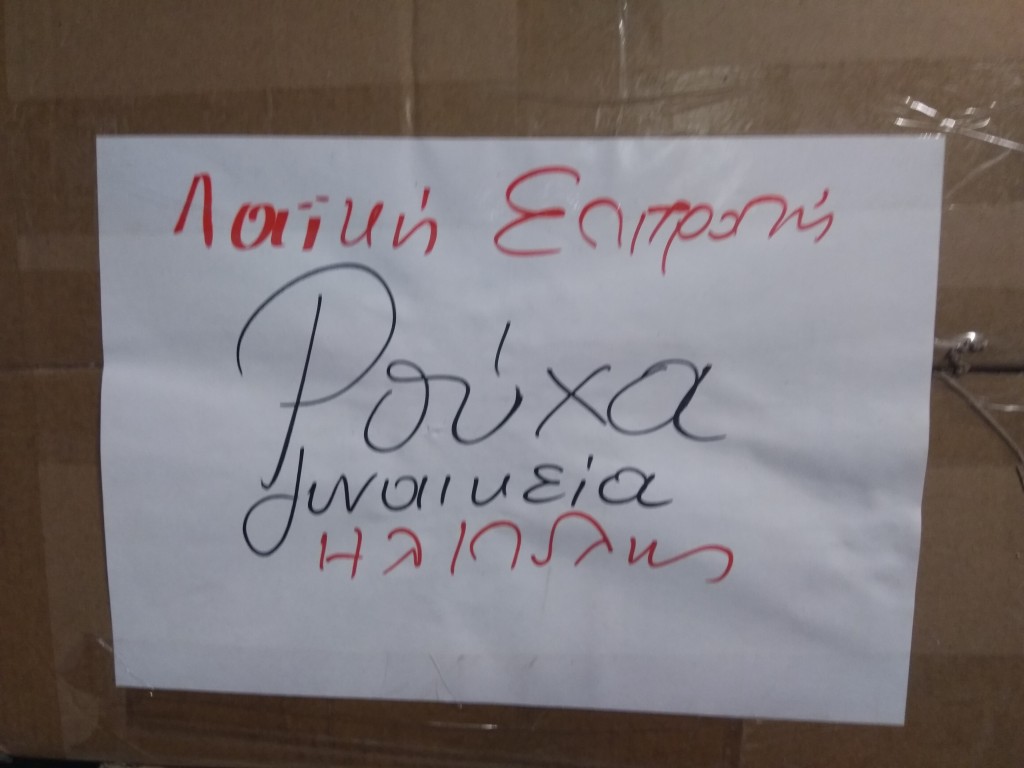 Λαϊκή Επιτροπή
Ρούχα
γυναικεία
Ηλιόπολης